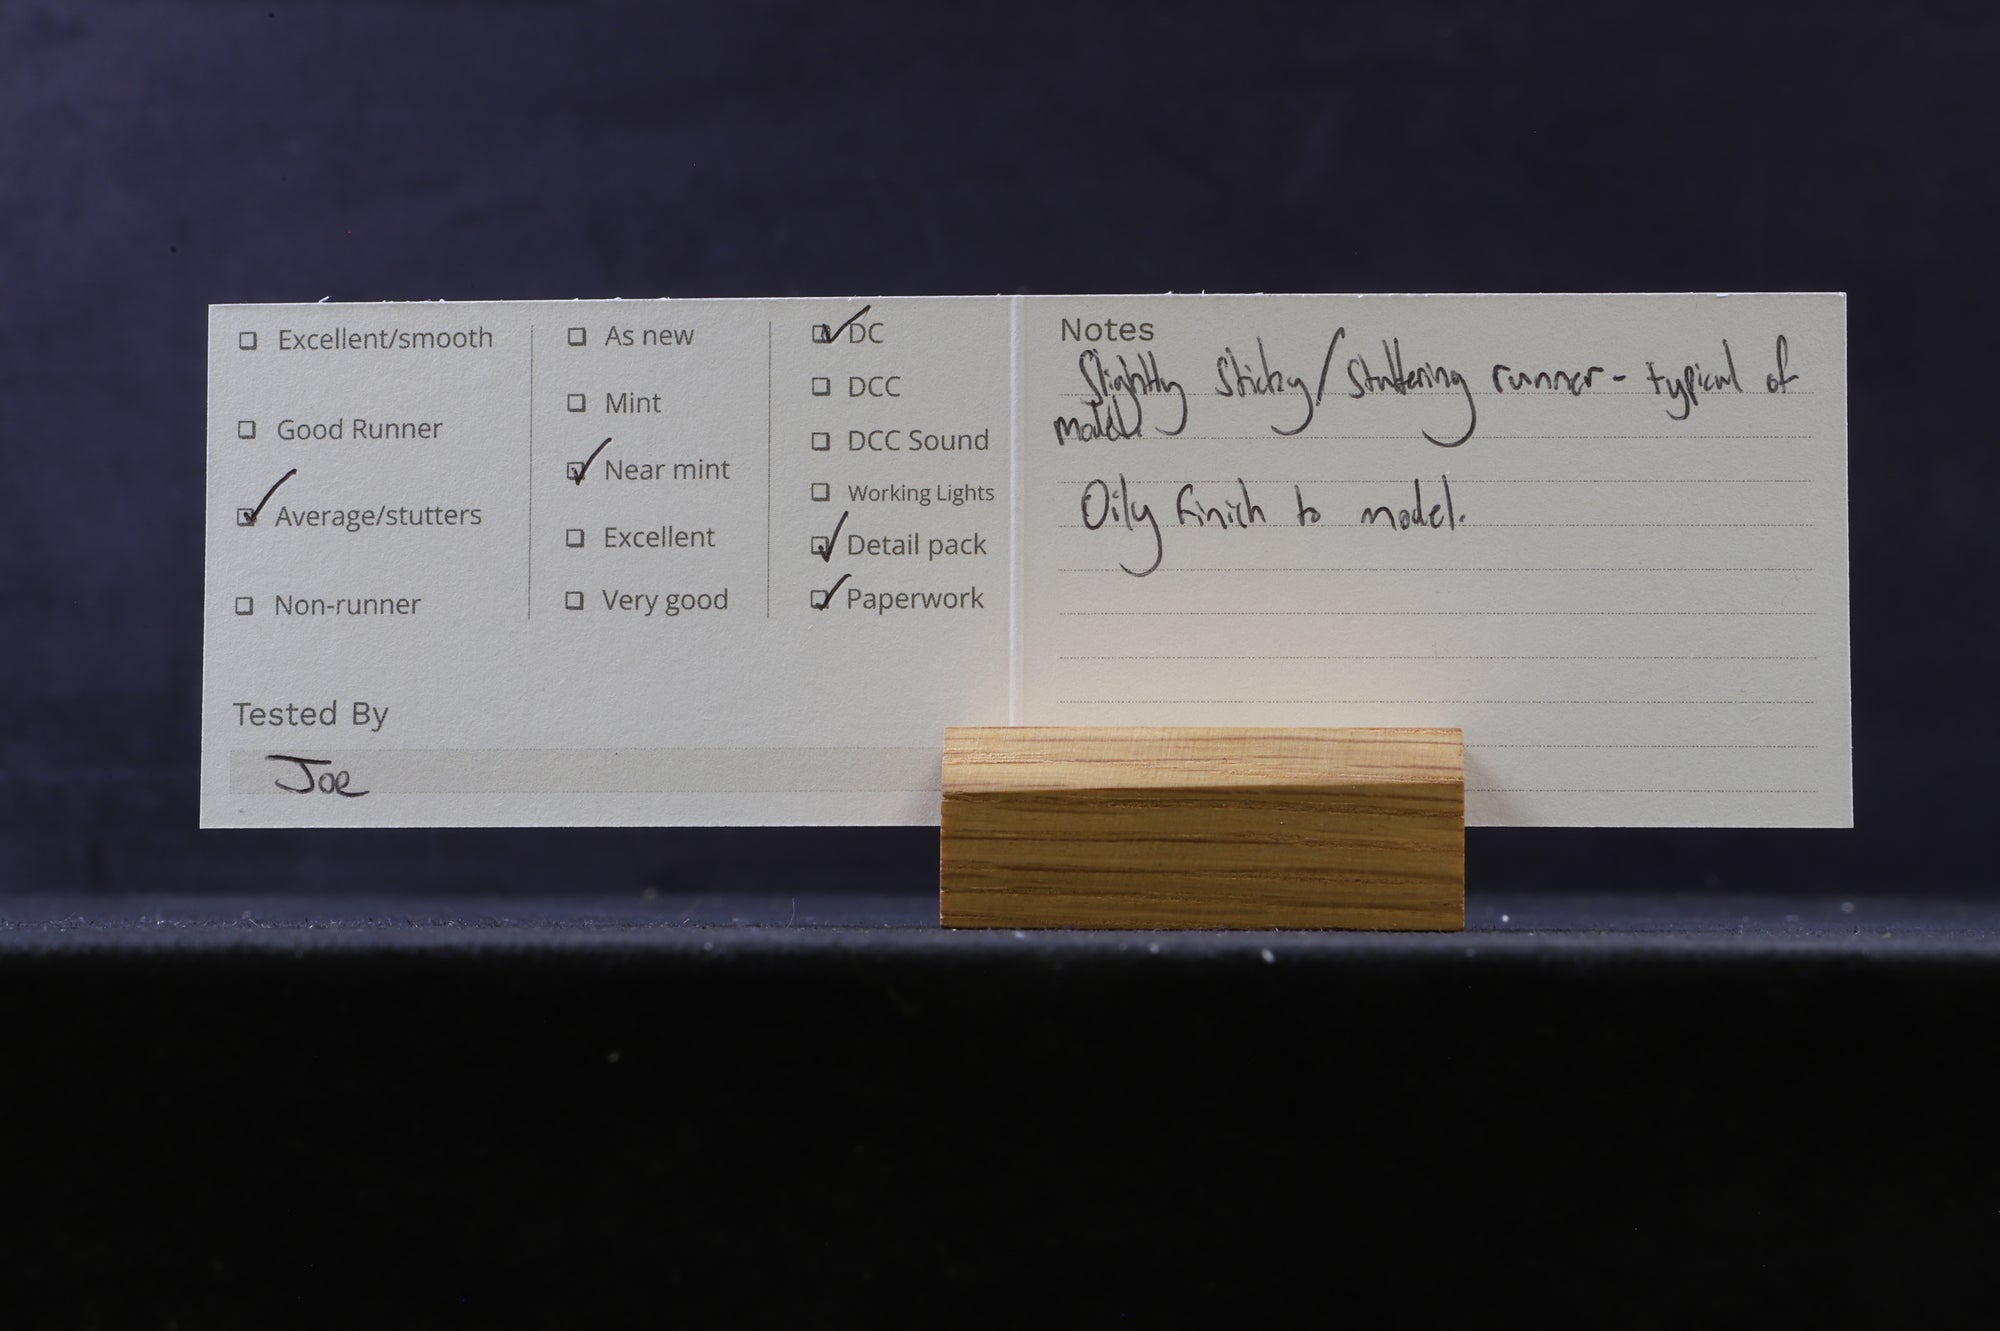 Excellent/smooth
Good Runner
Average/stutters
Non-runner
As new
Mint
Near mint
Excellent
Very good
DC
DCC
DCC Sound
Working Lights
Detail pack
Paperwork
Tested By
Joe
Notes
Slightly Sticky/Stuttering runner - typical of
model.
Oily finish to model.